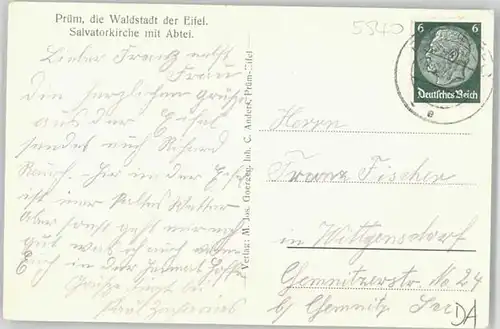 Prüm, die Waldstadt der Eifel.
Salvatorkirche mit Abtei.
5540
6 6
Deutsches Reich
e
Lieber Franz nebst
Frau
Die herzlichen Grüße
aus der Eifel
sendet euch Richard
hier in der Eifel
ist immer kaltes Wetter
Aber sonst geht mir noch
gut was ich auch von
Euch in der Heimat hoffe
Grüße
Verlag: M. Jos. Goergen, Inh. C. Anders, Prüm-Eifel
Herrn
Franz Fischer
in Wittgensdorf
Chemnitzerstr. No 24
b/ Chemnitz Sa.
DA